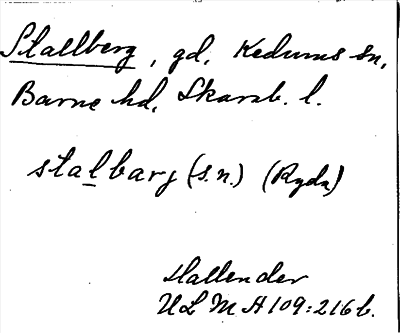 Stallberg, gd, Kedums sn,
Barne hd, Skarab. l.
stalbarj (s.n.) (Ryda)
Hallender
ULMA 109:216 b.